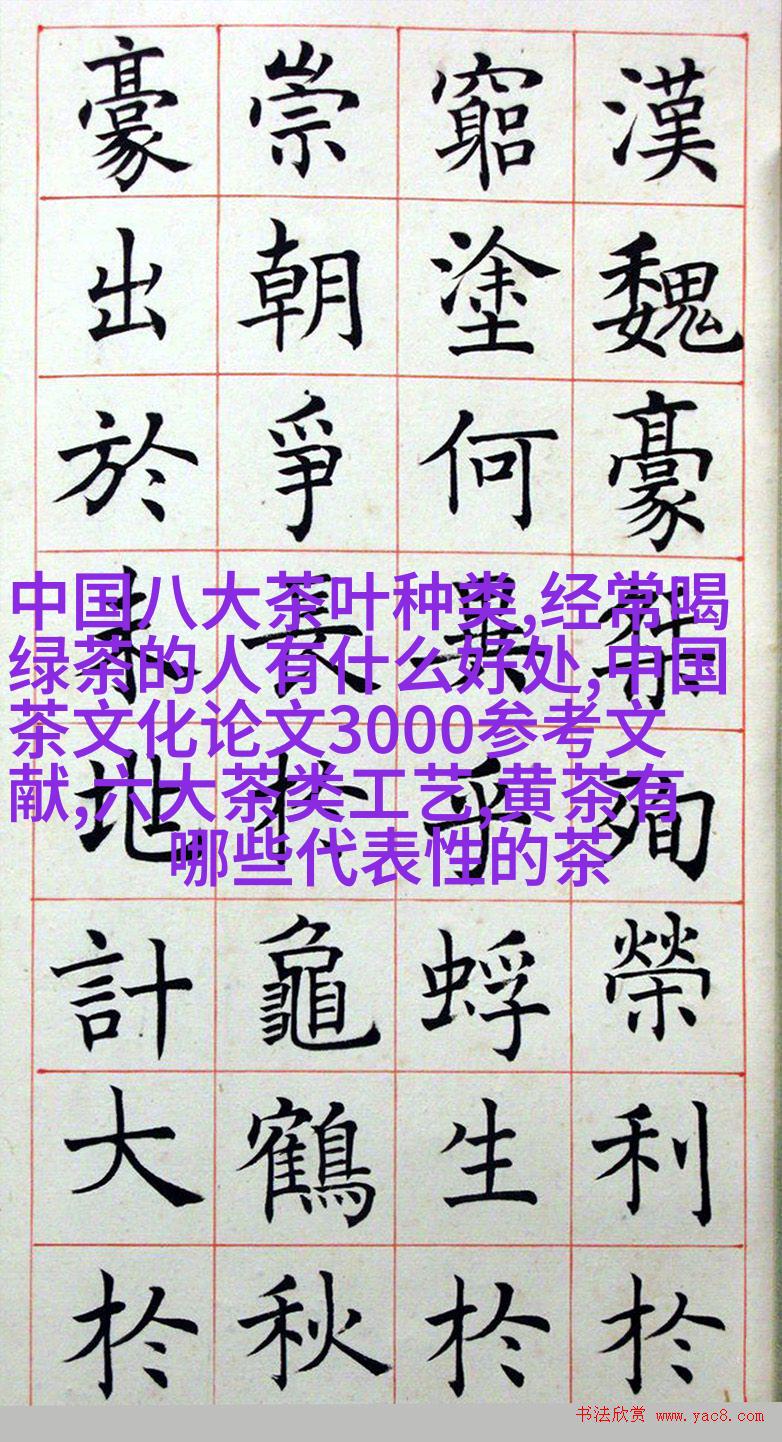 漢魏豪殉榮利扵
窮塗何異乎蜉生扵
崇朝爭長扵龜鶴秋
豪出於地計大扵
中国八大茶叶种类,经常喝
绿茶的人有什么好处,中国
茶文化论文3000参考文
献,六大茶类工艺,黄茶有
哪些代表性的茶
书法欣赏 www.yac8.com